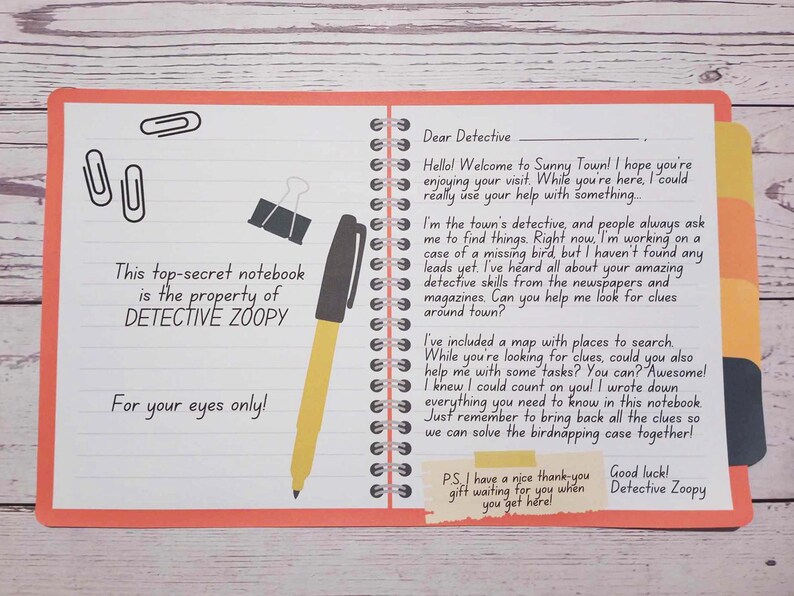 This top-secret notebook
is the property of
DETECTIVE ZOOPY
For your eyes only!
Dear Detective ____________________ ,
Hello! Welcome to Sunny Town! I hope you're
enjoying your visit. While you're here, I could
really use your help with something...
I'm the town's detective, and people always ask
me to find things. Right now, I'm working on a
case of a missing bird, but I haven't found any
leads yet. I've heard all about your amazing
detective skills from the newspapers and
magazines. Can you help me look for clues
around town?
I've included a map with places to search.
While you're looking for clues, could you also
help me with some tasks? You can? Awesome!
I knew I could count on you! I wrote down
everything you need to know in this notebook.
Just remember to bring back all the clues so
we can solve the birdnapping case together!
Good luck!
Detective Zoopy
P.S. I have a nice thank-you
gift waiting for you when
you get here!